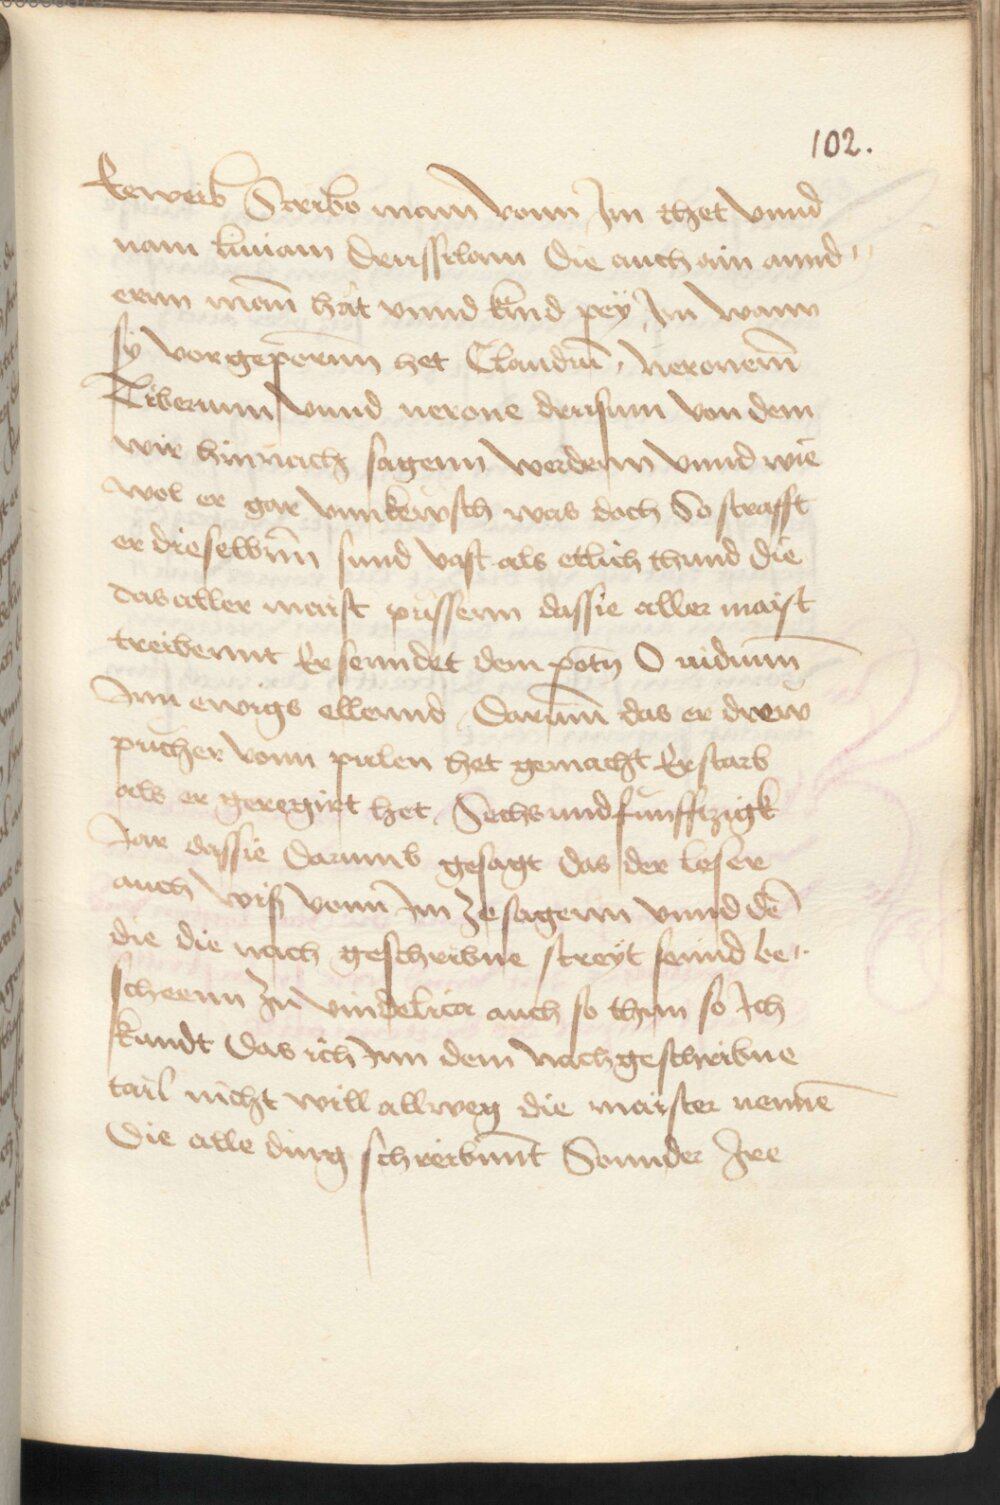 102.
Eeweib Scribo mam vonn Im thet vnnd
nam liuiam drussilam die auch ain annd„
ernn man̄ hat vnnd kind pey Im wann
sy vor geperenn het Claudiū, neronem̄
Tiberium vnnd nerone drusum von dem
wir hinnach sagenn werdenn vnnd wie
wol er gar vnnkewsch was doch So strafft
er dieselbnn̄ sund vast als ettlich thund die
das aller maist pussenn dassie aller maist
treibennt Er senndet dem poetn O uidium̄
Inn ewigs ellennd, Darumb̄ das er drew
pucher vonn pulen het gemacht Er starb
als er geregirt het, Sechs und funfftzigk
Jar dassie darumb gesagt das der leser
auch wiss vonn Im ze sagenn vnnd dē
die die nach geschribne streyt seind be„
scheenn zu vindelica auch so thun so Ich
kundt das ich Inn dem nachgeschribne
tail nicht will allweg die maister nennē
Die alle ding schreibnn̄t Sonnder Ire